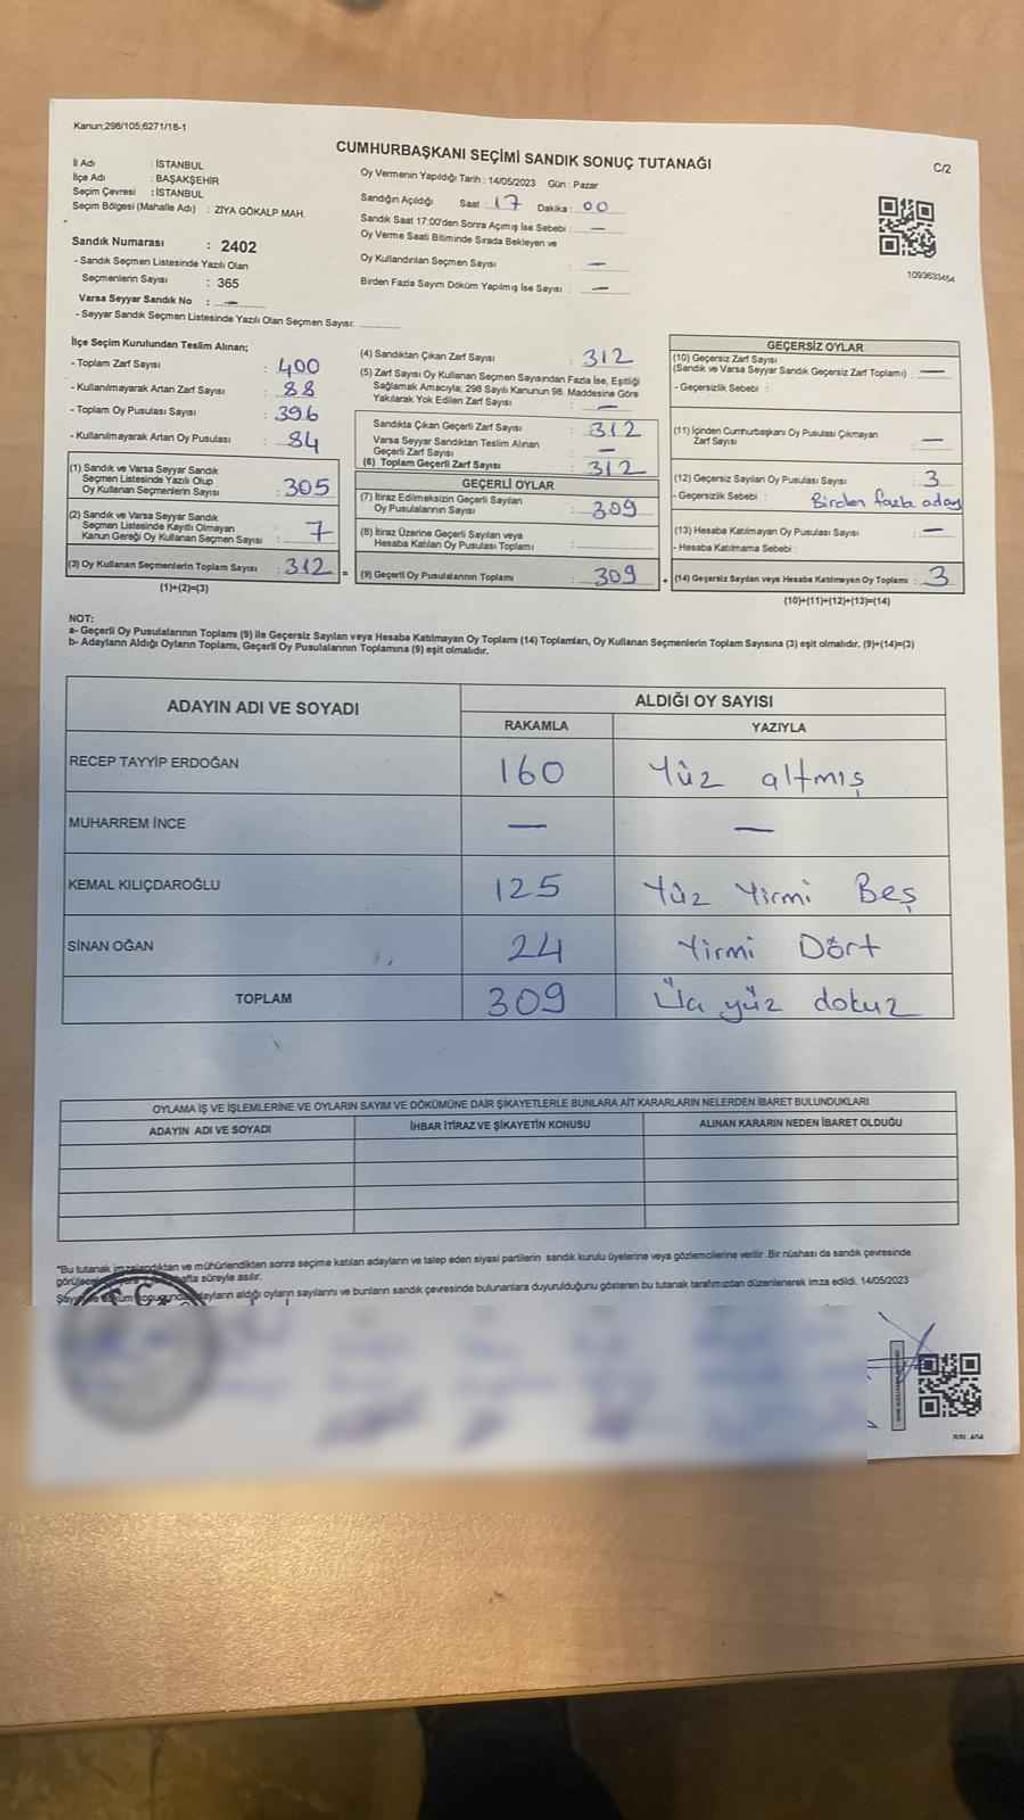 Kanun;298/105;6271/18-1
CUMHURBAŞKANI SEÇİMİ SANDIK SONUÇ TUTANAĞI
C/2
İl Adı : İSTANBUL
İlçe Adı : BAŞAKŞEHİR
Seçim Çevresi : İSTANBUL
Seçim Bölgesi (Mahalle Adı) : ZİYA GÖKALP MAH.
Oy Vermenin Yapıldığı Tarih : 14/05/2023 Gün : Pazar
Sandığın Açıldığı Saat : 17 Dakika : 00
Sandık Saat 17:00'den Sonra Açımış İse Sebebi : —
Oy Verme Saati Bitiminde Sırada Bekleyen ve
Oy Kullandırılan Seçmen Sayısı : —
Birden Fazla Sayım Döküm Yapılmış İse Sayısı : —
1093633454
Sandık Numarası : 2402
- Sandık Seçmen Listesinde Yazılı Olan
Seçmenlerin Sayısı : 365
Varsa Seyyar Sandık No : —
- Seyyar Sandık Seçmen Listesinde Yazılı Olan Seçmen Sayısı:
İlçe Seçim Kurulundan Teslim Alınan;
- Toplam Zarf Sayısı : 400
- Kullanılmayarak Artan Zarf Sayısı : 88
- Toplam Oy Pusulası Sayısı : 396
- Kullanılmayarak Artan Oy Pusulası : 84
(1) Sandık ve Varsa Seyyar Sandık
Seçmen Listesinde Yazılı Olup
Oy Kullanan Seçmenlerin Sayısı : 305
(2) Sandık ve Varsa Seyyar Sandık
Seçmen Listesinde Kayıtlı Olmayan
Kanun Gereği Oy Kullanan Seçmen Sayısı : 7
(3) Oy Kullanan Seçmenlerin Toplam Sayısı : 312 =
(1)+(2)=(3)
(4) Sandıktan Çıkan Zarf Sayısı : 312
(5) Zarf Sayısı Oy Kullanan Seçmen Sayısından Fazla İse, Eşitliği
Sağlamak Amacıyla; 298 Sayılı Kanunun 98. Maddesine Göre
Yakılarak Yok Edilen Zarf Sayısı : —
Sandıkta Çıkan Geçerli Zarf Sayısı : 312
Varsa Seyyar Sandıktan Teslim Alınan
Geçerli Zarf Sayısı : —
(6) Toplam Geçerli Zarf Sayısı : 312
GEÇERLİ OYLAR
(7) İtiraz Edilmeksizin Geçerli Sayılan
Oy Pusulalarının Sayısı : 309
(8) İtiraz Üzerine Geçerli Sayılan veya
Hesaba Katılan Oy Pusulası Toplamı :
(9) Geçerli Oy Pusulalarının Toplamı : 309 +
GEÇERSİZ OYLAR
(10) Geçersiz Zarf Sayısı
(Sandık ve Varsa Seyyar Sandık Geçersiz Zarf Toplamı) : —
- Geçersizlik Sebebi :
(11) İçinden Cumhurbaşkanı Oy Pusulası Çıkmayan
Zarf Sayısı : —
(12) Geçersiz Sayılan Oy Pusulası Sayısı : 3
- Geçersizlik Sebebi : Birden fazla aday
(13) Hesaba Katılmayan Oy Pusulası Sayısı : —
- Hesaba Katılmama Sebebi :
(14) Geçersiz Sayılan veya Hesaba Katılmayan Oy Toplamı : 3
(10)+(11)+(12)+(13)=(14)
NOT:
a- Geçerli Oy Pusulalarının Toplamı (9) ile Geçersiz Sayılan veya Hesaba Katılmayan Oy Toplamı (14) Toplamları, Oy Kullanan Seçmenlerin Toplam Sayısına (3) eşit olmalıdır. (9)+(14)=(3)
b- Adayların Aldığı Oyların Toplamı, Geçerli Oy Pusulalarının Toplamına (9) eşit olmalıdır.
ADAYIN ADI VE SOYADI
ALDIĞI OY SAYISI
RAKAMLA YAZIYLA
RECEP TAYYİP ERDOĞAN 160 Yüz altmış
MUHARREM İNCE — —
KEMAL KILIÇDAROĞLU 125 Yüz Yirmi Beş
SİNAN OĞAN 24 Yirmi Dört
TOPLAM 309 Üç yüz dokuz
OYLAMA İŞ VE İŞLEMLERİNE VE OYLARIN SAYIM VE DÖKÜMÜNE DAİR ŞİKAYETLERLE BUNLARA AİT KARARLARIN NELERDEN İBARET BULUNDUKLARI
ADAYIN ADI VE SOYADI İHBAR İTİRAZ VE ŞİKAYETİN KONUSU ALINAN KARARIN NEDEN İBARET OLDUĞU
*Bu tutanak imzalandıktan ve mühürlendikten sonra seçime katılan adayların ve talep eden siyasi partilerin sandık kurulu üyelerine veya gözlemcilerine verilir. Bir nüshası da sandık çevresinde
süreyle asılır.
adayların aldığı oyların sayılarını ve bunların sandık çevresinde bulunanlara duyurulduğunu gösteren bu tutanak tarafımızdan düzenlenerek imza edildi. 14/05/2023